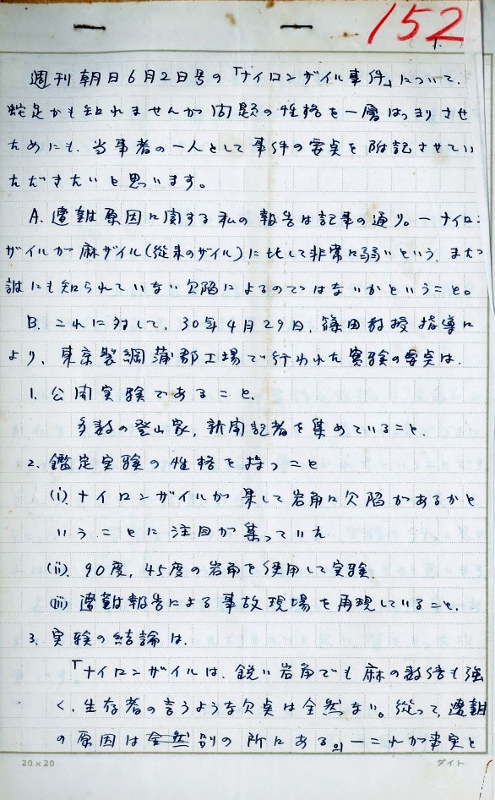 152
1.
週刊朝日6月2日号の「ナイロンザイル事件」について、
蛇足かも知れませんが問題の性格を一層はっきりさせ
ためにも、当事者の一人として事件の要点を附記させてい
ただきたいと思います。
A. 遭難原因に関する私の報告は記事の通り。―ナイロン
ザイルが麻ザイル(従来のザイル)に比して非常に弱いという、まだ
誰にも知られていない欠陥によるのではないかということ。
B. これに対して、30年4月29日、篠田教授指導に
より、東京製綱蒲郡工場で行われた実験の要点は、
1. 公開実験であること、
多数の登山家、新聞記者を集めていること、
2. 鑑定実験の性格を持つこと
(i) ナイロンザイルが果して岩角に欠陥があるかと
いうことに注目が集っていた
(ii) 90度, 45度の岩角を使用して実験、
(iii) 遭難報告による事故現場を再現していること、
3. 実験の結論は、
「ナイロンザイルは、鋭い岩角でも麻の数倍も強
く、生存者の言うような欠点は全然ない。従って、遭難
の原因は全然別の所にある。」―これが事実と
20×20
ダイト